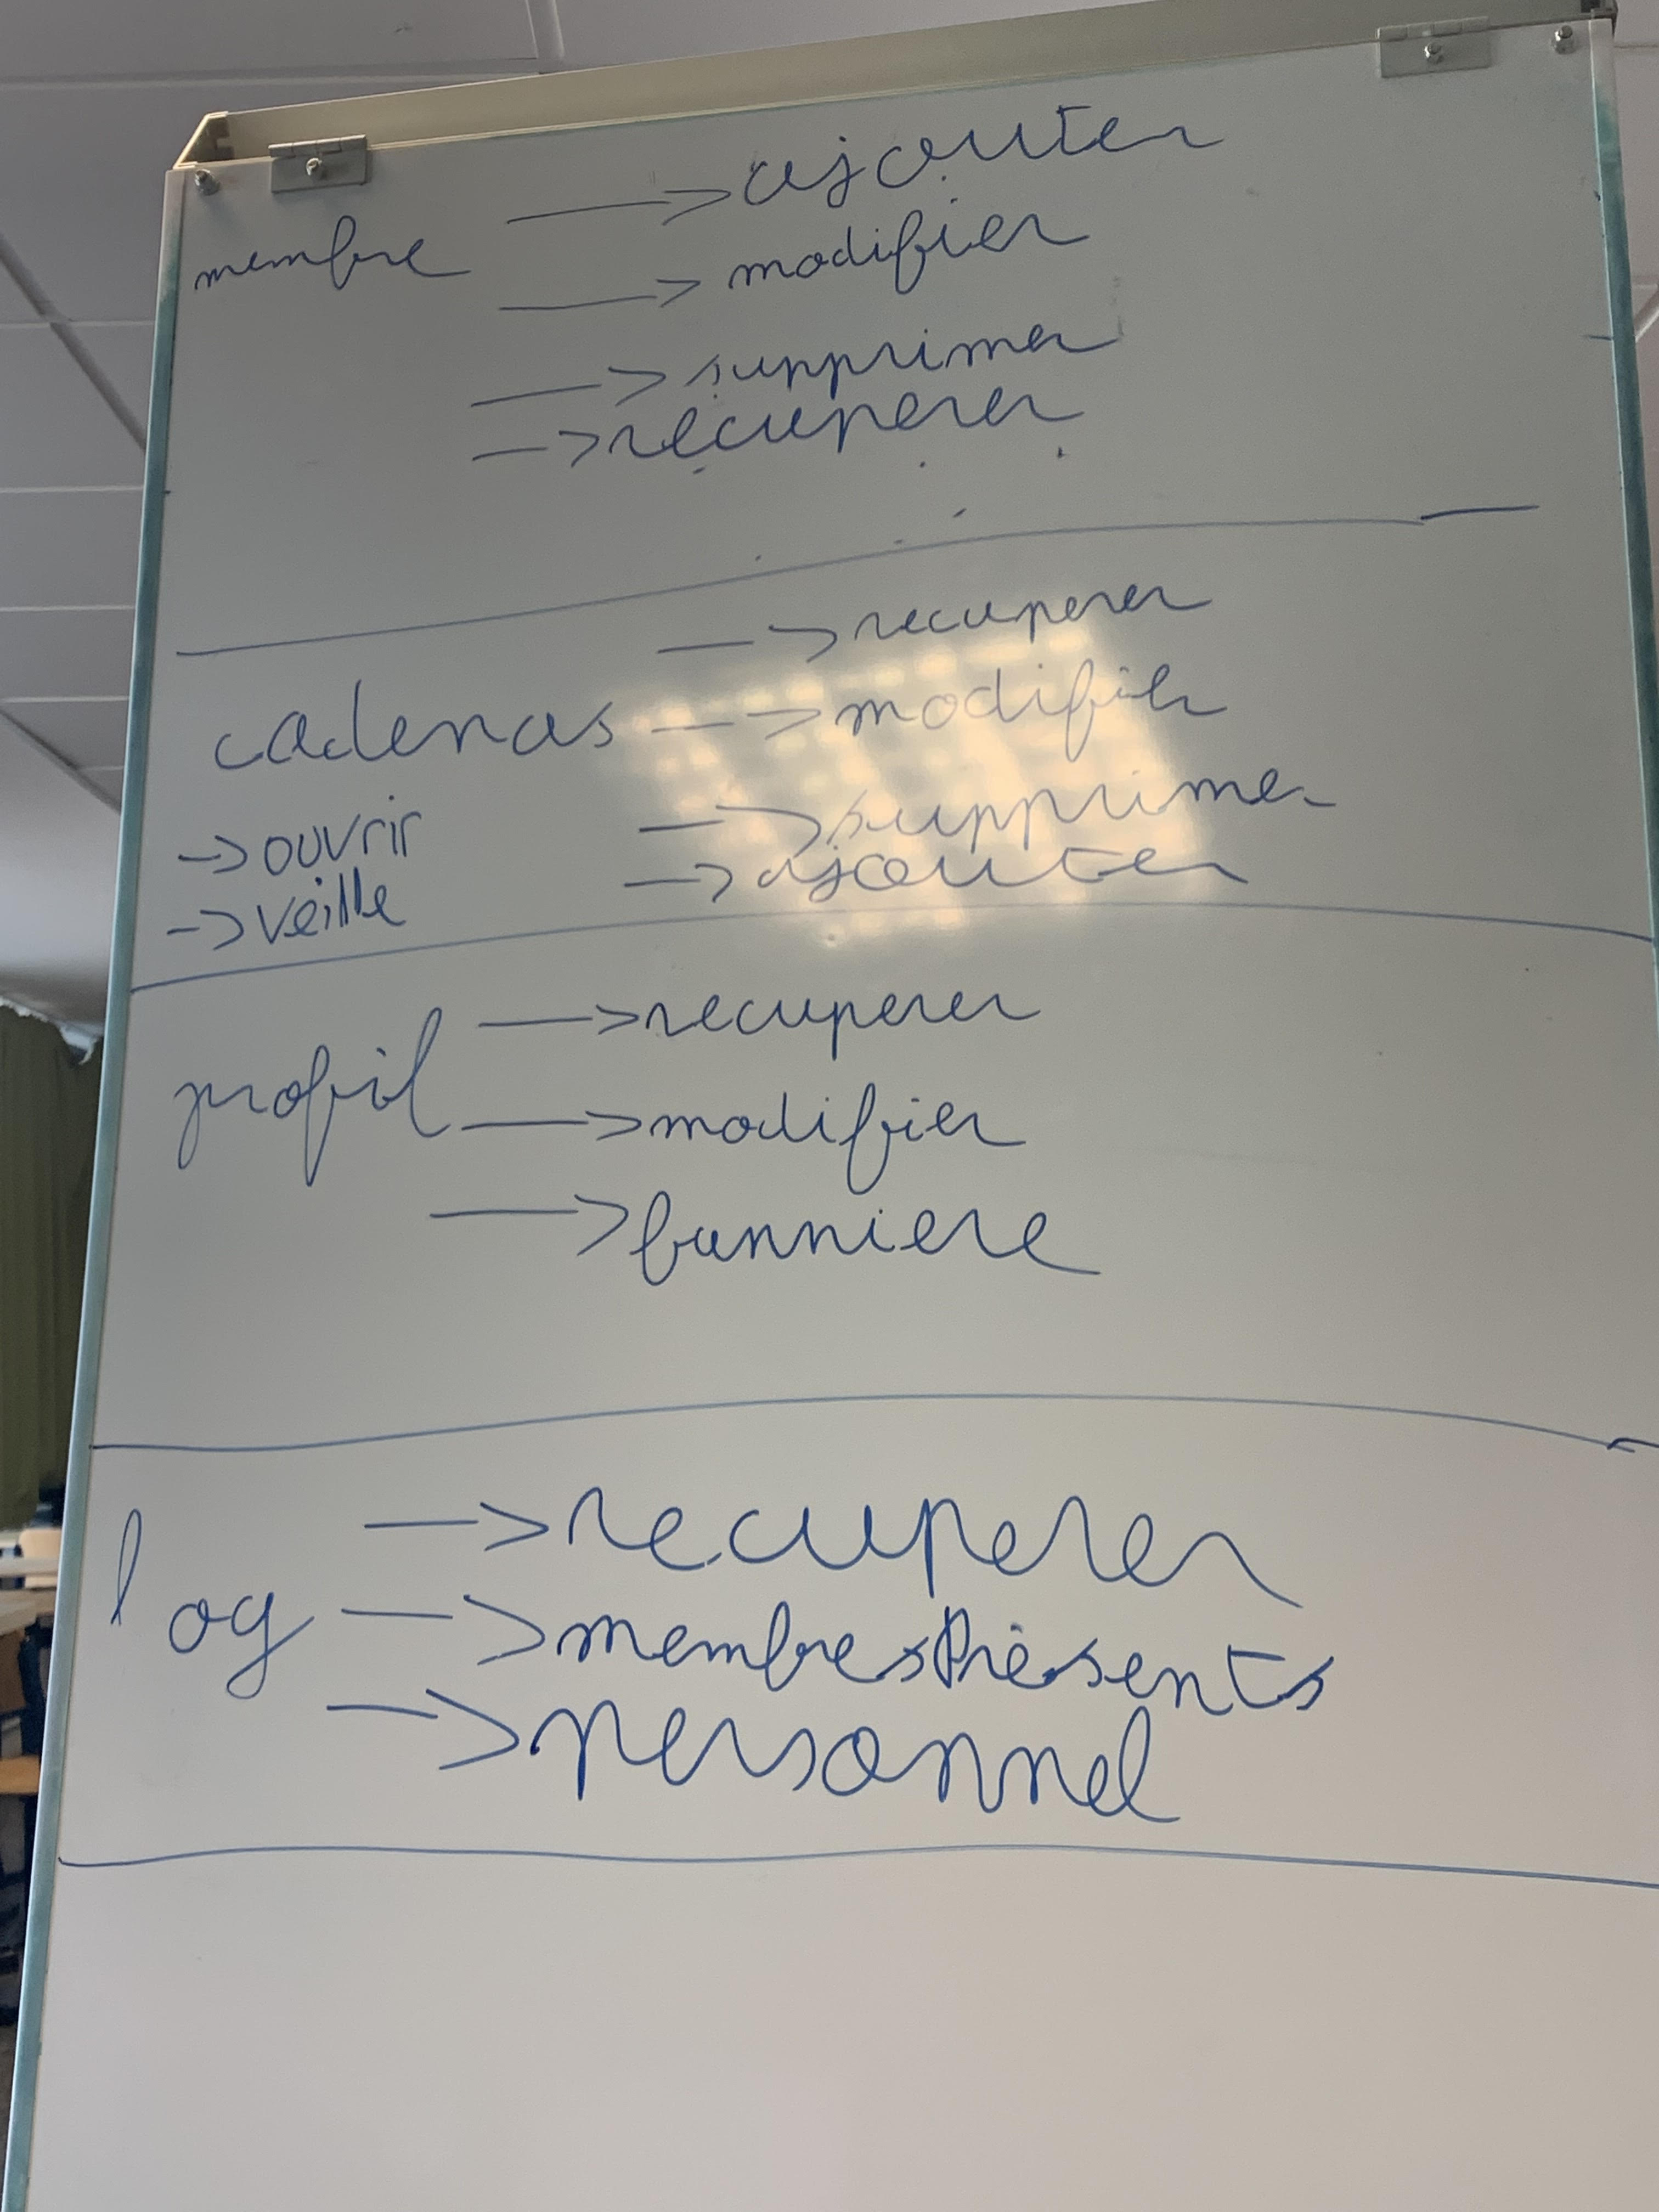 membre → ajouter
→ modifier
→ supprimer
→ recuperer
cadenas → recuperer
→ modifier
→ supprimer
→ ajouter
→ ouvrir
→ veille
profil → recuperer
→ modifier
→ banniere
log → recuperer
→ membresPresents
→ personnel